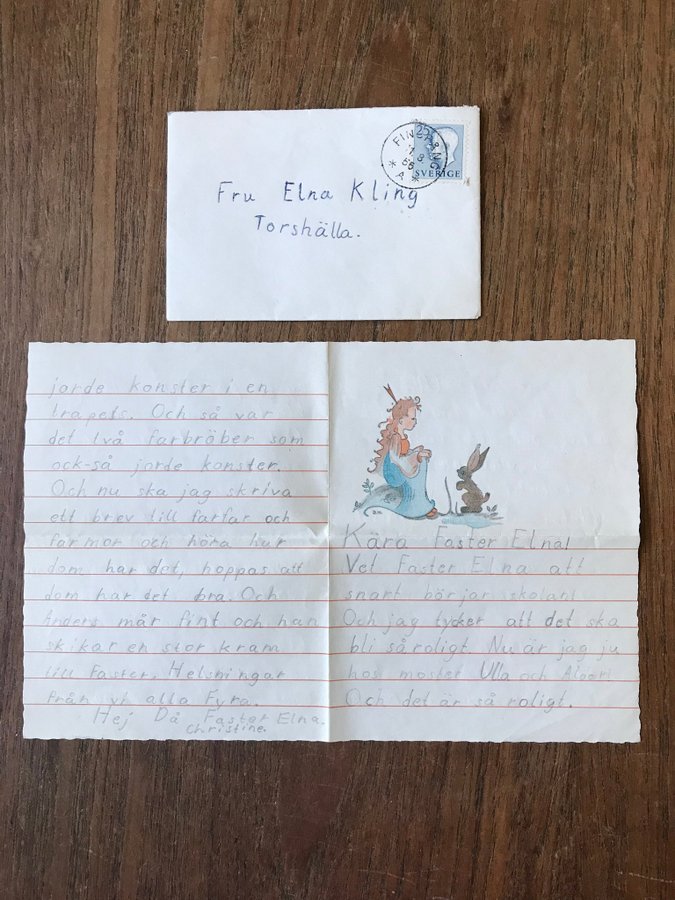 FINSPÅNG
55
A
25
SVERIGE
Fru Elna Kling
Torshälla.
Kära Faster Elna!
Vet Faster Elna att
snart börjar skolan!
Och jag tycker att det ska
bli så roligt. Nu är jag ju
hos moster Ulla och
Och det är så roligt.
jorde konster i en
trapets. Och så var
det två farbröber som
ock-så jorde konster.
Och nu ska jag skriva
ett brev till farfar och
farmor och höra hur
dom har det, hoppas att
dom har det bra. Och
Anders mår fint och han
skikar en stor kram
till Faster. Helsningar
från vi alla Fyra.
Hej Då Faster Elna.
Christine.